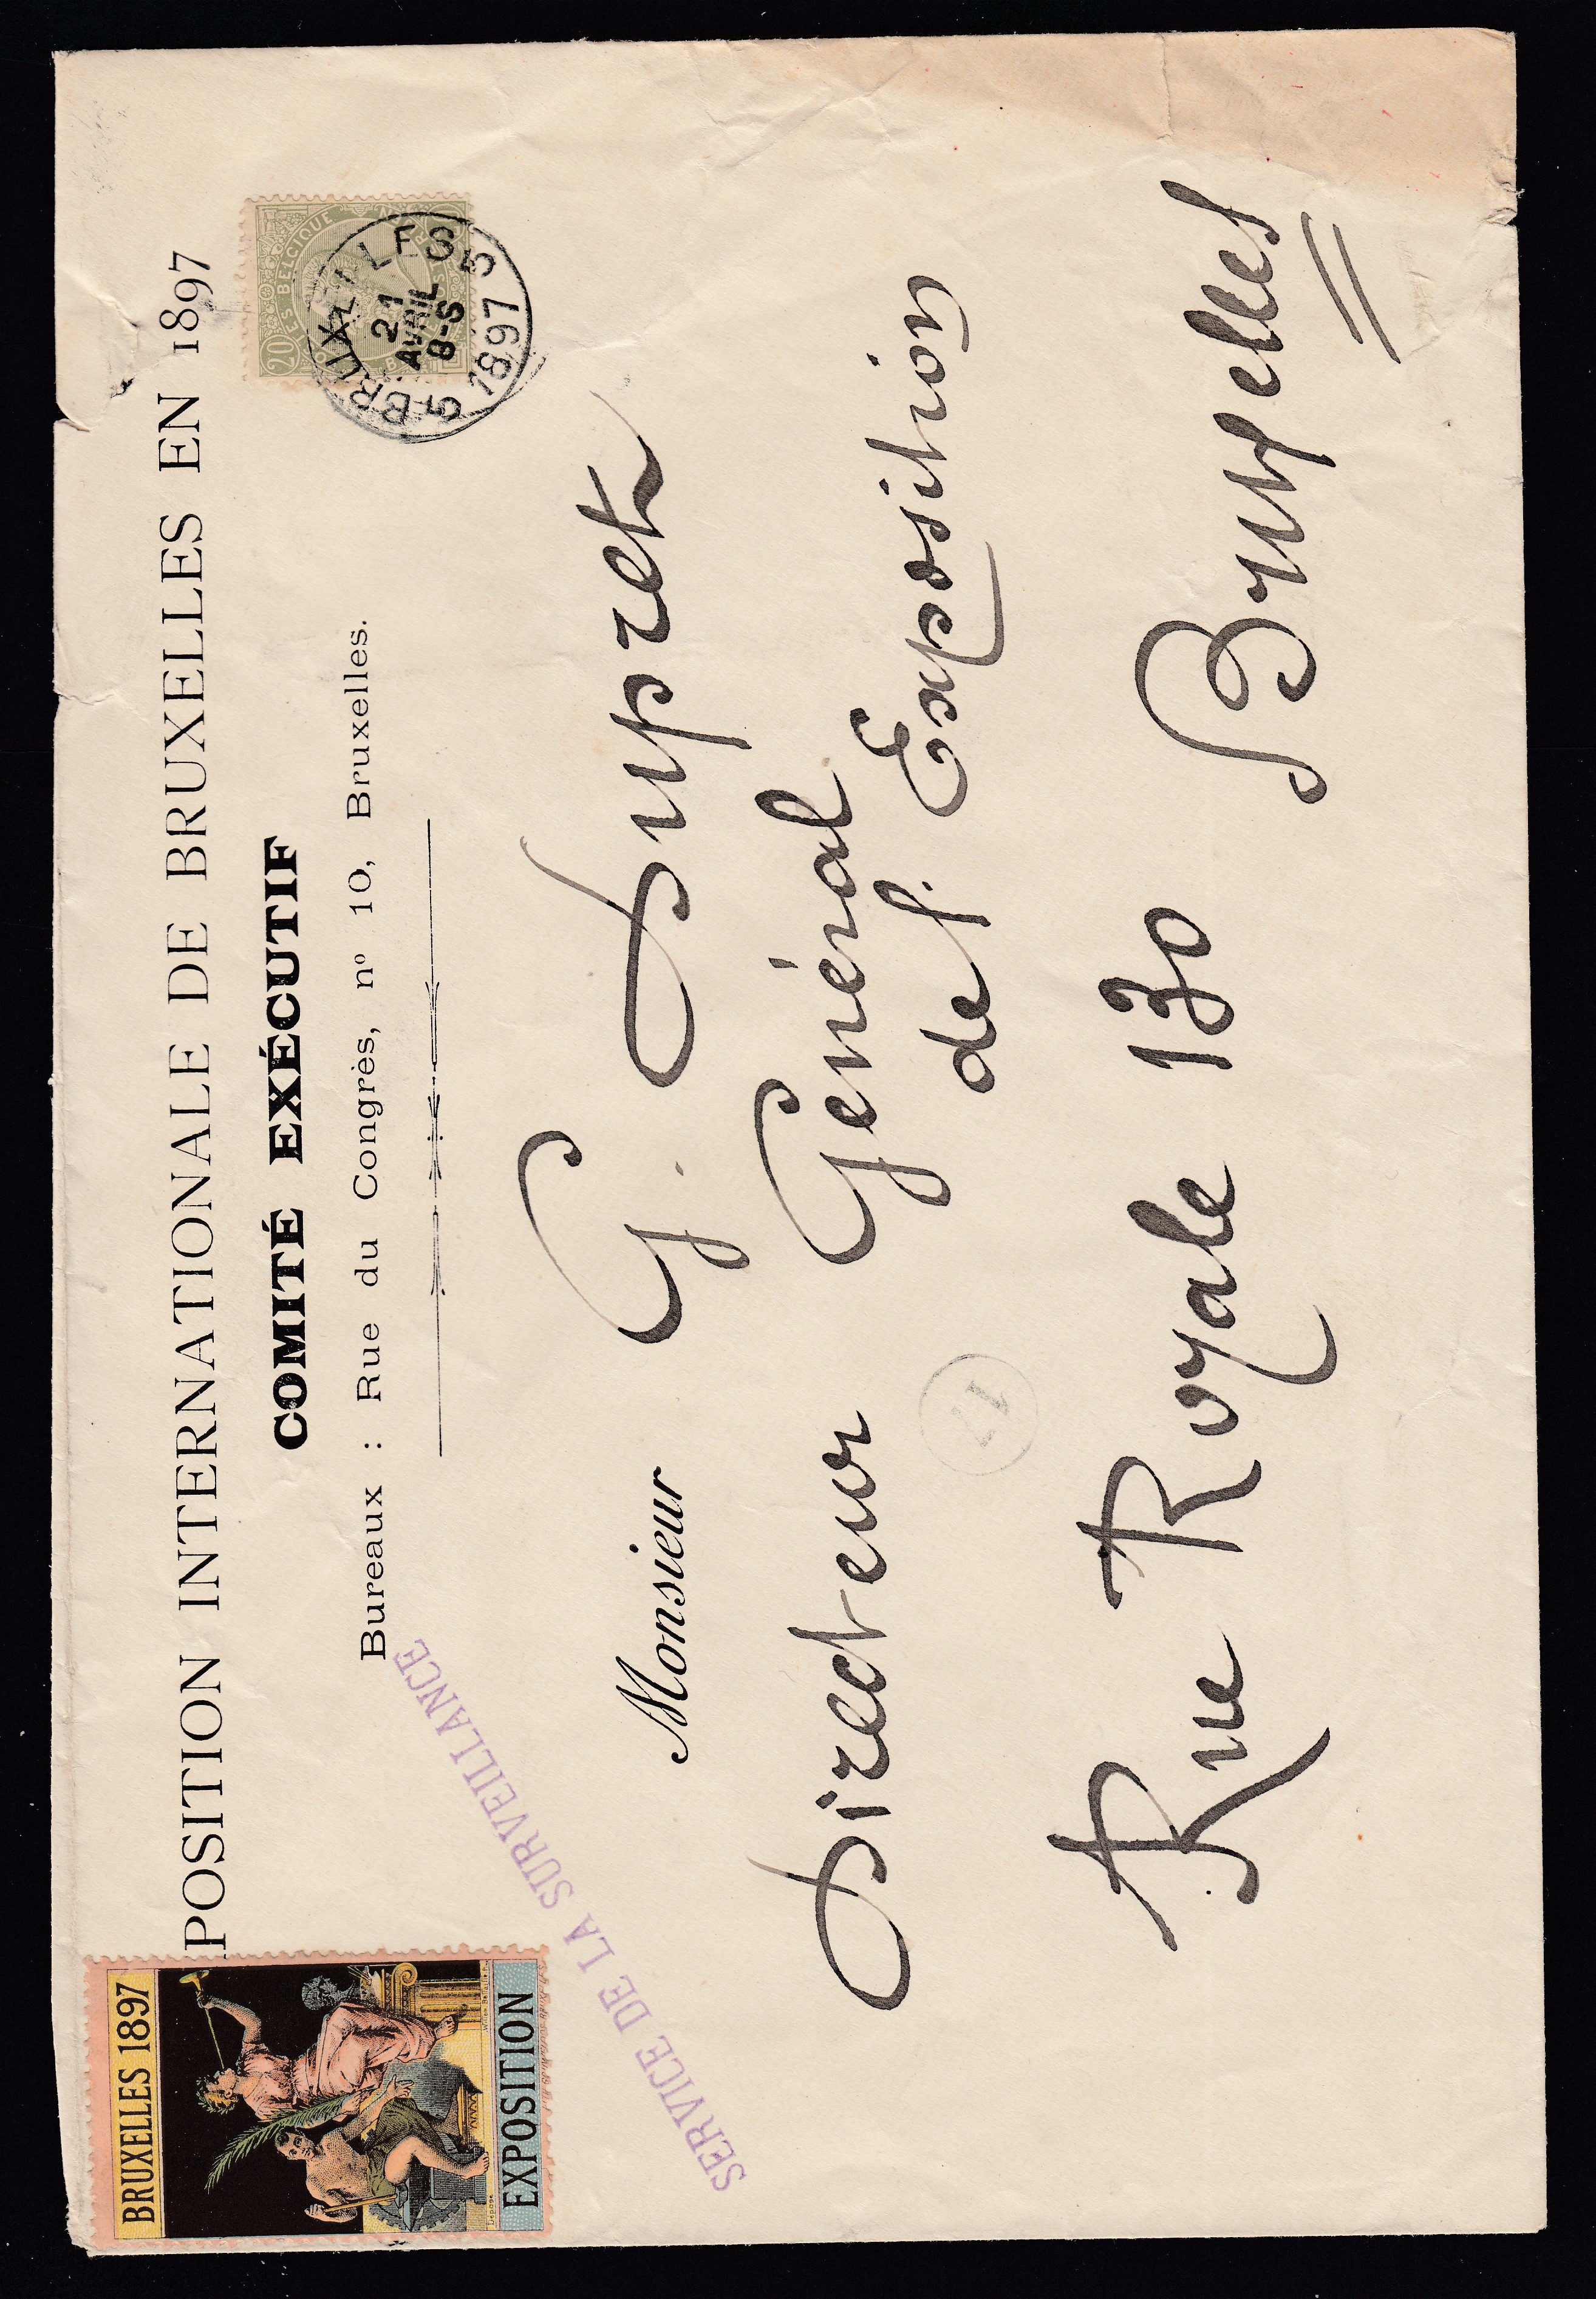 POSITION INTERNATIONALE DE BRUXELLES EN 1897
COMITÉ EXÉCUTIF
Bureaux : Rue du Congrès, nº 10, Bruxelles.
BRUXELLES 1897
EXPOSITION
20
BELGIQUE
5 BRUXELLES 5
21
AVRIL
8-S
1897
SERVICE DE LA SURVEILLANCE
Monsieur G. Dupret
Directeur Général
de l' Exposition
17
Rue Royale 130 Bruxelles